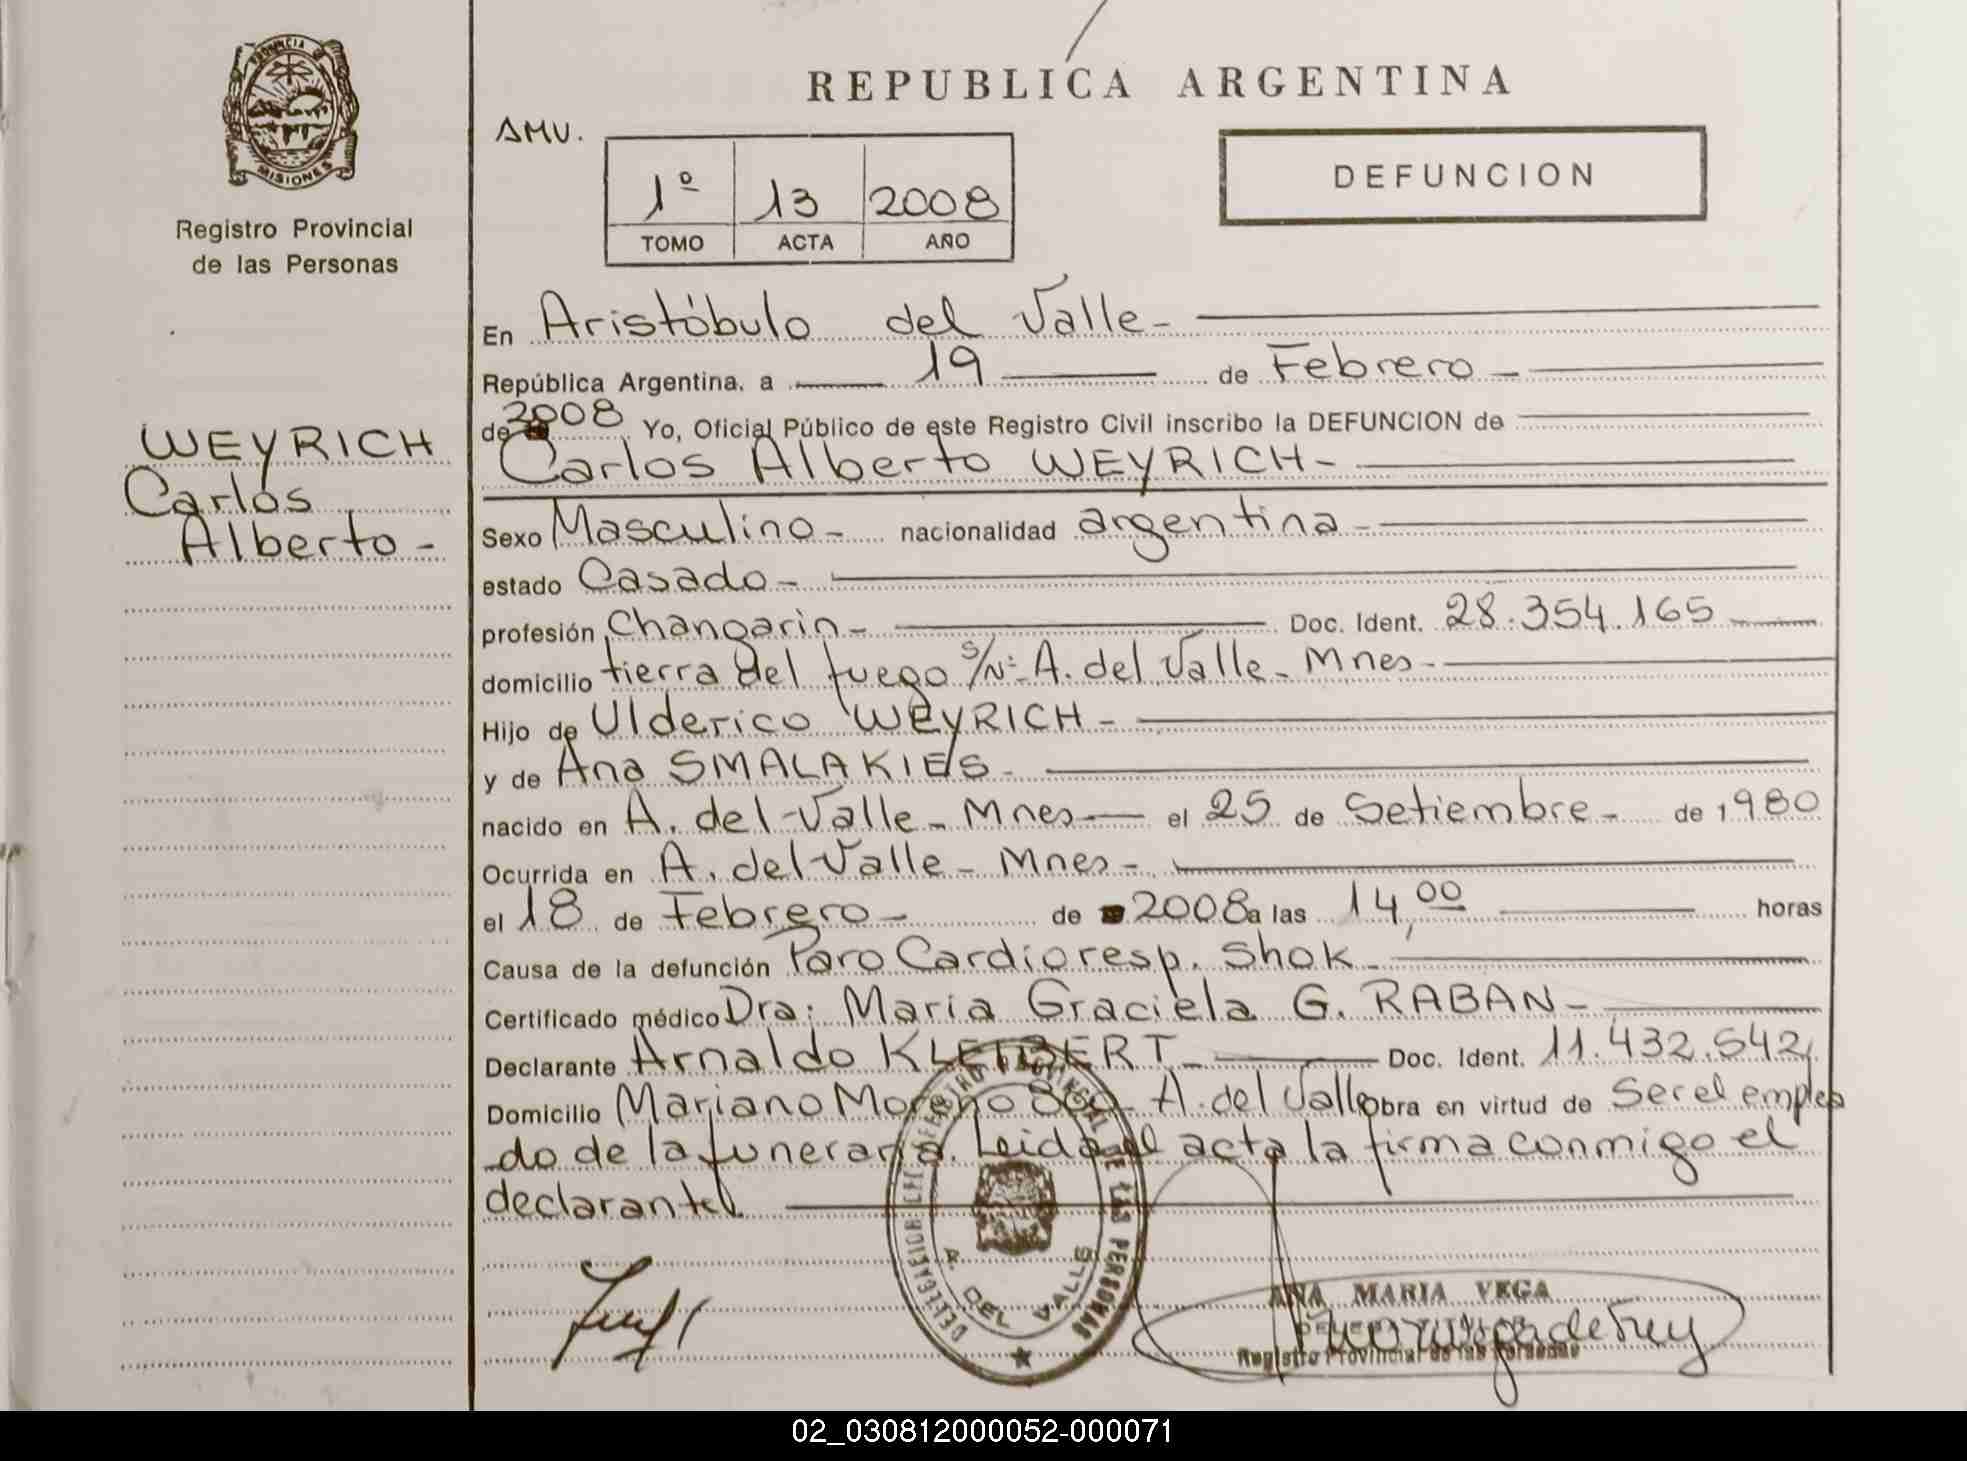 PROVINCIA DE
MISIONES
Registro Provincial
de las Personas
WEYRICH
Carlos
Alberto -
REPUBLICA ARGENTINA
AMV.
1º 13 2008
TOMO ACTA AÑO
DEFUNCION
En Aristóbulo del Valle -
República Argentina, a 19 de Febrero -
de 2008 Yo, Oficial Público de este Registro Civil inscribo la DEFUNCION de
Carlos Alberto WEYRICH -
Sexo Masculino - nacionalidad argentina -
estado Casado -
profesión Changarin - Doc. Ident. 28.354.165
domicilio tierra del fuego s/Nº A. del Valle - Mnes -
Hijo de Ulderico WEYRICH -
y de Ana SMALAKIES -
nacido en A. del Valle - Mnes - el 25 de Setiembre - de 1980
Ocurrida en A. del Valle - Mnes -
el 18 de Febrero - de 2008 a las 14,00 horas
Causa de la defunción Paro Cardioresp. Shok -
Certificado médico Dra: Maria Graciela G. RABAN -
Declarante Arnaldo KLEIBERT - Doc. Ident. 11.432.542,
Domicilio Mariano Moreno - A. del Valle obra en virtud de Ser el emplea
do de la funeraria. Leida el acta la firma conmigo el
declarante.
DELEGACION REGISTRO PROVINCIAL DE LAS PERSONAS
A. DEL VALLE
ANA MARIA VEGA
Registro Provincial de las Personas
02_030812000052-000071